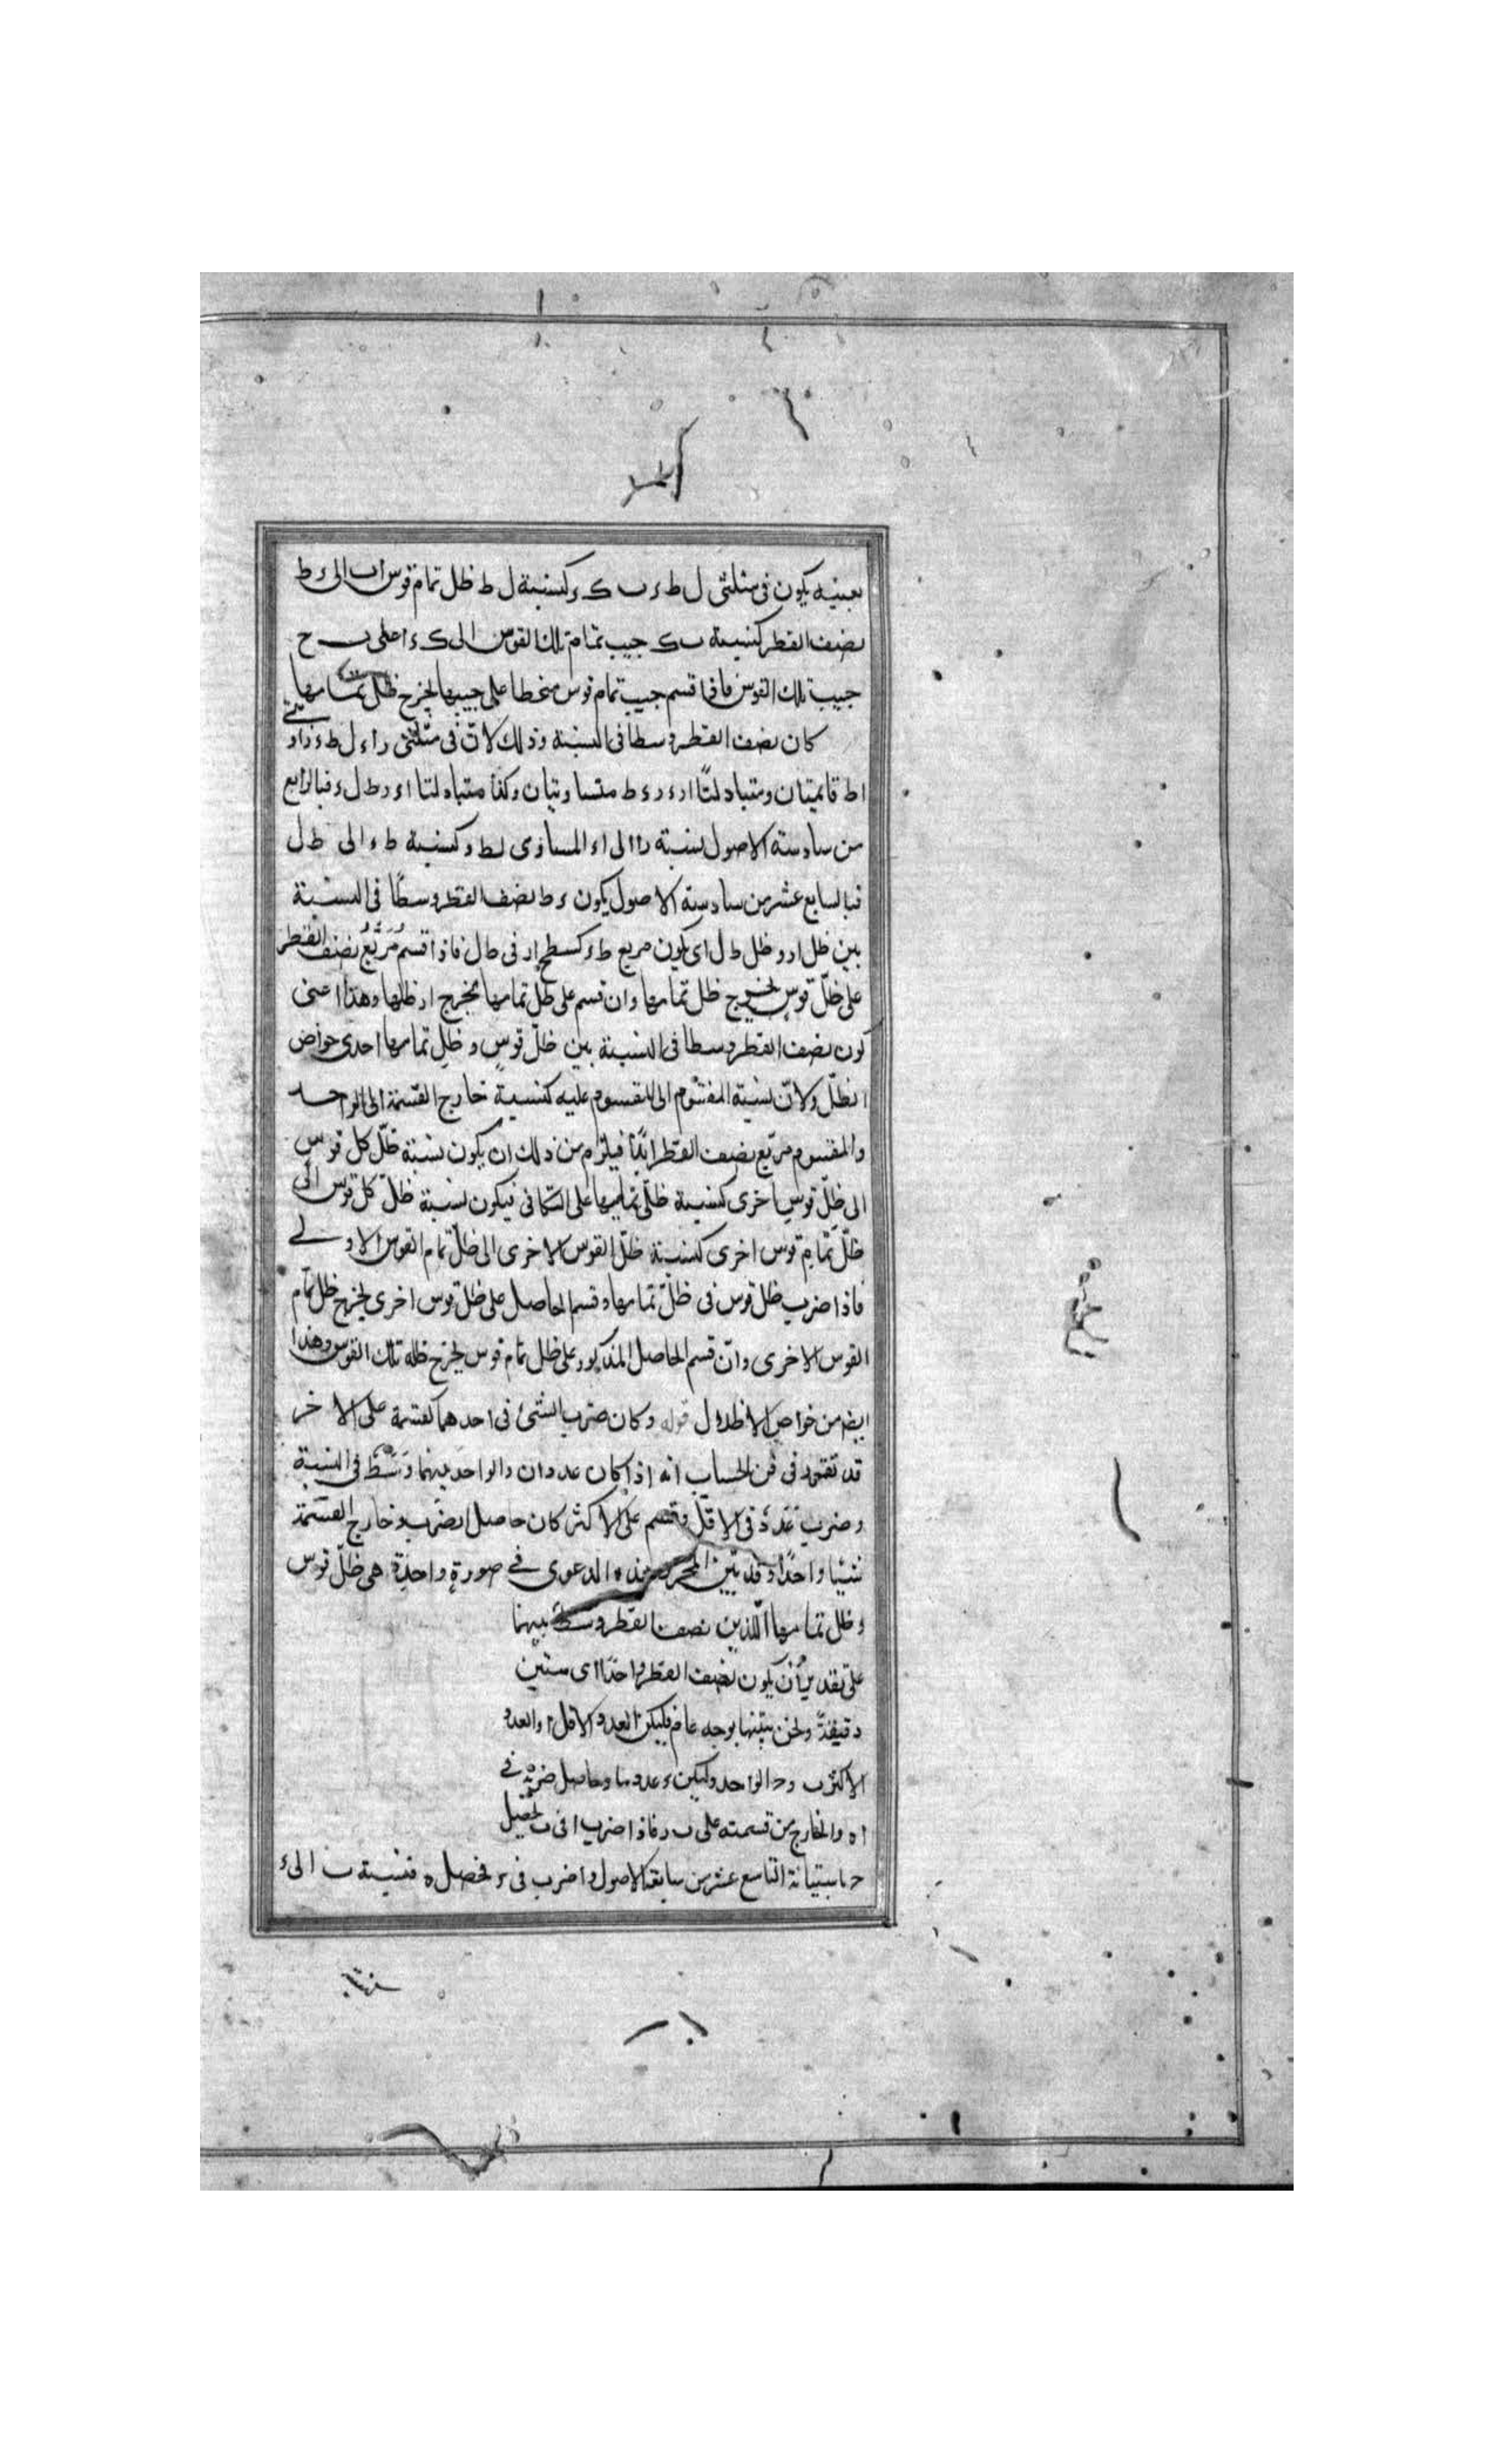 بعينيه يكون فى مثلثى ل ط ء ب ك ء كنسبة ل ط ظل تمام قوس اب الى ء ط
نصف القطر كنسبة ب ك جيب تمام تلك القوس الى ك ء اعلى ب ح
جيب تلك القوس فاذا قسم جيب تمام قوس منحطا على جيبها يخرج ظل تمامها
كان نصف القطر وسطا فى النسبة وذلك لان فى مثلثى راء ل ط ء زاويتى
اط قائمتان ومتبادلتا ارء رء ط متساويتان وكذا متبادلتا اء ر ط ل ء فبالرابع
من سادسة الاصول نسبة را الى اء المساوى لط ء كنسبة ط ء الى ط ل
فبالسابع عشر من سادسة الاصول يكون ء ط نصف القطر وسطا فى النسبة
بين ظل ار و ظل ط ل اى يكون مربع ط ء كسطح ار فى ط ل فاذا قسم مربع نصف القطر
على ظل قوس يخرج ظل تمامها وان قسم على ظل تمامها يخرج ار ظلها وهذا اعنى
كون نصف القطر وسطا فى النسبة بين ظل قوس و ظل تمامها احدى خواص
الظل ولان نسبة المقسوم الى المقسوم عليه كنسبة خارج القسمة الى الواحد
والمقسوم مربع نصف القطر ابدا فيلزم من ذلك ان يكون نسبة ظل كل قوس
الى ظل قوس اخرى كنسبة ظلى تماميها على التكافى فيكون نسبة ظل كل قوس الى
ظل تمام قوس اخرى كنسبة ظل القوس الاخرى الى ظل تمام القوس الاولى
فاذا ضرب ظل قوس فى ظل تمامها وقسم الحاصل على ظل قوس اخرى يخرج ظل تمام
القوس الاخرى وان قسم الحاصل المذكور على ظل تمام قوس يخرج ظله تلك القوس وهذا
ايضا من خواص الاظلال قوله وكان ضرب الشئ فى احدهما كقسمة على الاخر
قد تقرر فى فن الحساب انه اذا كان عددان والواحد بينهما وسط فى النسبة
وضرب عدد فى الاقل وقسم على الاكثر كان حاصل الضرب وخارج القسمة
شيئا واحدا وقد بين المحرر هذه الدعوى فى صورة واحدة هى ظل قوس
وظل تمامها اللذين نصف القطر وسط بينهما
على تقدير أن يكون نصف القطر واحدا اى ستين
دقيقة ونحن نبينها بوجه عام فليكن العدد الاقل ا والعدد
الاكثر ب و ح الواحد وليكن ء عددا ما وحاصل ضربه فى
ا ه والخارج من قسمته على ب ر فاذا ضرب ا فى ب يحصل
ح باستبانة التاسع عشر من سابعة الاصول واضرب فى ر فحصل ه فنسبة ب الى ء